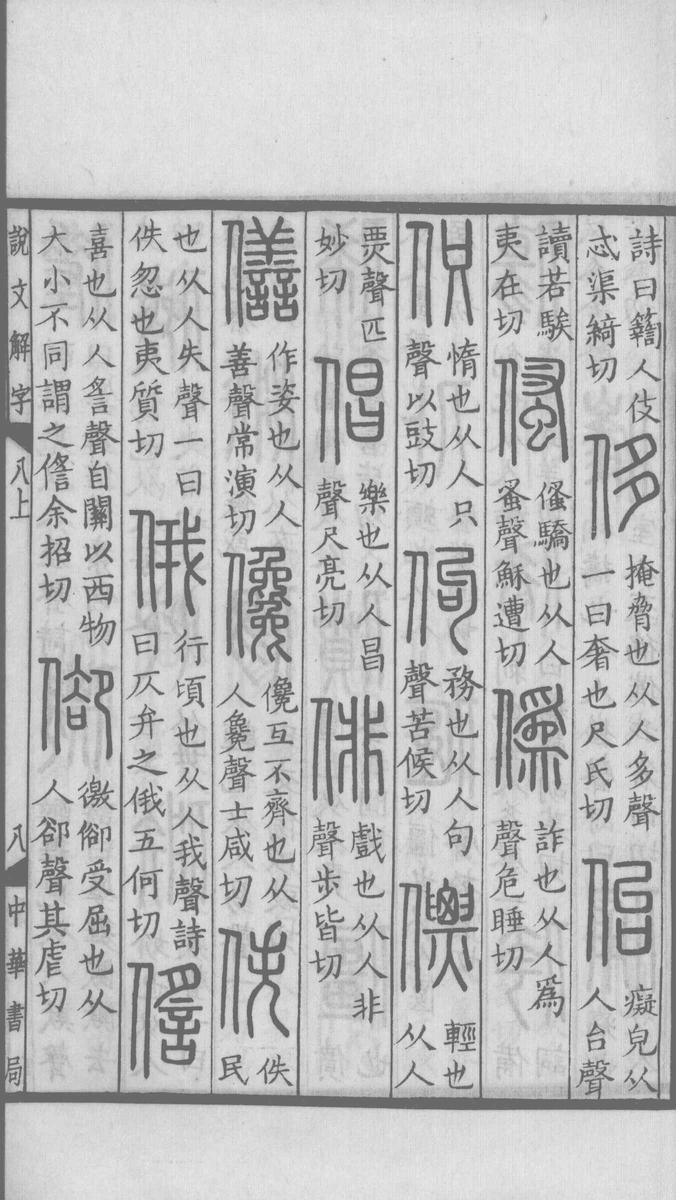 詩曰人伎
忒渠綺切
侈
掩脅也从人多聲
一曰奢也尺氏切
佁
癡皃从
人台聲
讀若騃
夷在切
驕也从人
蚤聲穌遭切
僞
詐也从人爲
聲危睡切
伿
惰也从人只
聲以豉切
佝
務也从人句
聲苦候切
僄
輕也
从人
票聲匹
妙切
倡
樂也从人昌
聲尺亮切
俳
戲也从人非
聲步皆切
僐
作姿也从人
善聲常演切
儳
儳互不齊也从
人毚聲士咸切
佚
佚
民
也从人失聲一曰
佚忽也夷質切
俄
行頃也从人我聲詩
曰仄弁之俄五何切
喜也从人䚻聲自關以西物
大小不同謂之余招切
徼受屈也从
人卻聲其虐切
說文解字 八上 八 中華書局